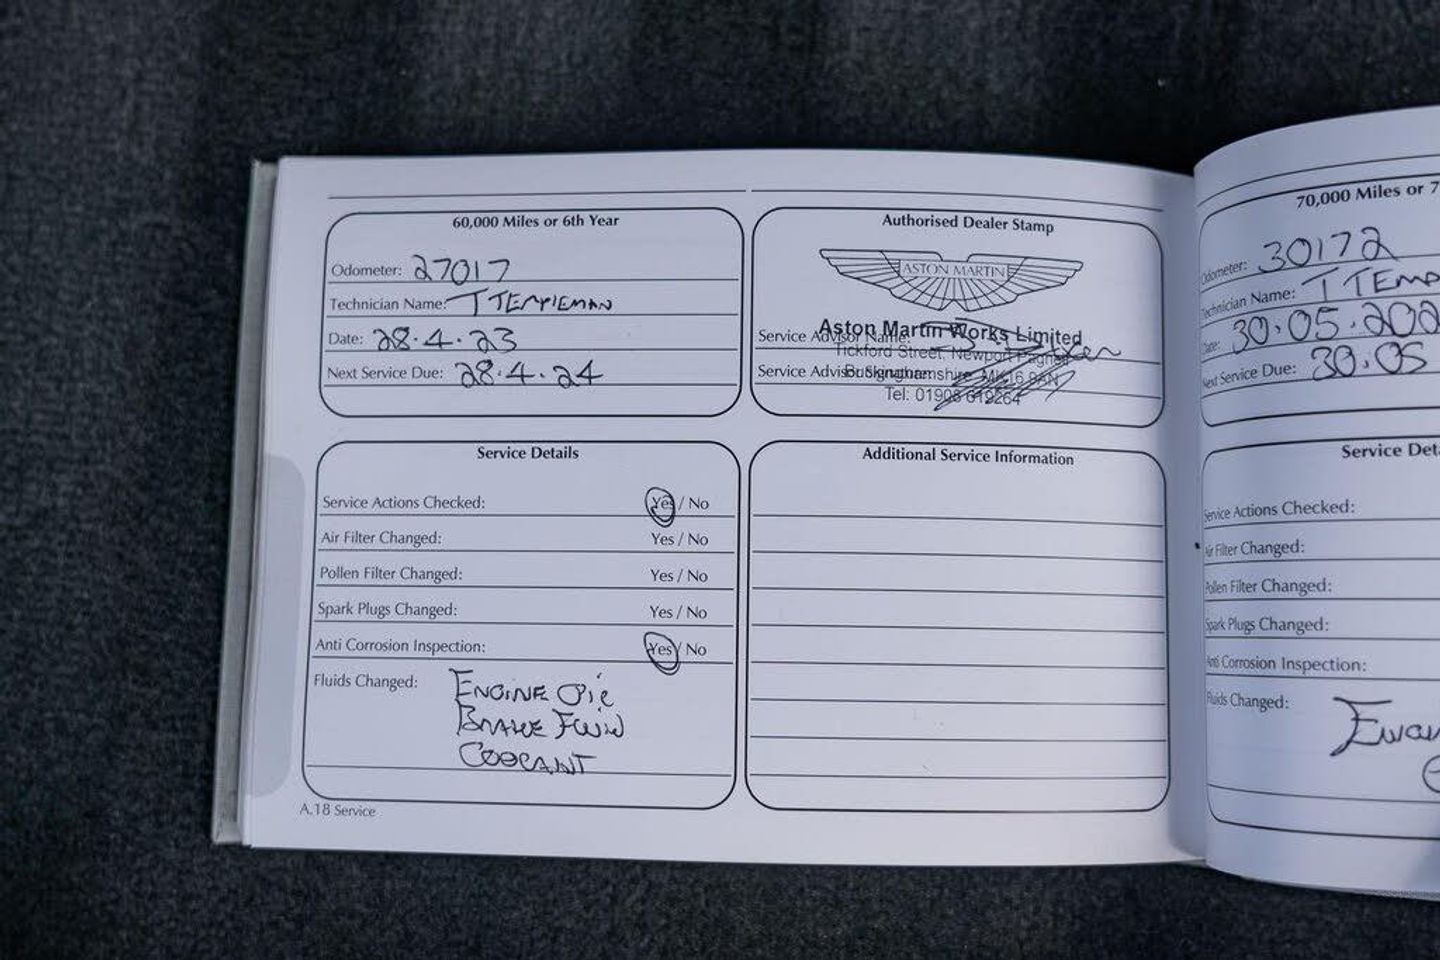 60,000 Miles or 6th Year
Odometer: 27017
Technician Name: T TEMPLEMAN
Date: 28.4.23
Next Service Due: 28.4.24
Authorised Dealer Stamp
ASTON MARTIN
Aston Martin Works Limited
Service Advisor Name:
Tickford Street, Newport Pagnell
Service Advisor Signature:
Buckinghamshire, MK16 9AN
Tel: 01908 619264
Service Details
Service Actions Checked: Yes / No
Air Filter Changed: Yes / No
Pollen Filter Changed: Yes / No
Spark Plugs Changed: Yes / No
Anti Corrosion Inspection: Yes / No
Fluids Changed: ENGINE OIL
BRAKE FLUID
COOLANT
Additional Service Information
A.18 Service
70,000 Miles or 7
Odometer: 30172
Technician Name: T TEMP
Date: 30.05.202
Next Service Due: 30.05
Service Deta
Service Actions Checked:
Air Filter Changed:
Pollen Filter Changed:
Spark Plugs Changed:
Anti Corrosion Inspection:
Fluids Changed: